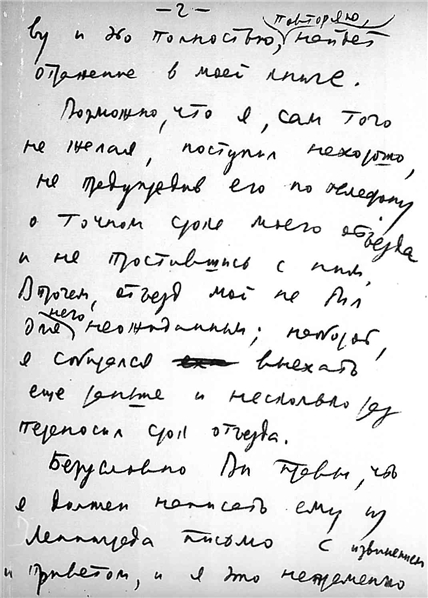 -2-
ву и это полностью, повторяю, найдет
отражение в моей книге.
Возможно, что я, сам того
не желая, поступил нехорошо,
не предупредив его по телефону
о точном сроке моего отъезда
и не простившись с ним.
Впрочем, отъезд мой не был
для него неожиданным; наоборот,
я собирался выехать
еще раньше и несколько раз
переносил срок отъезда.
Безусловно Вы правы, что
я должен написать ему из
Ленинграда письмо с извинением
и приветом, и я это непременно